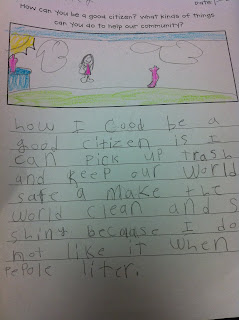 Date
How can you be a good citizen? What kinds of things
can you do to help our community?
how I Good be a
good citizen is I
can pick up trash
and keep our World
safe a Make the
world clean and s
shiny because I do
not like it when
pepole liter.